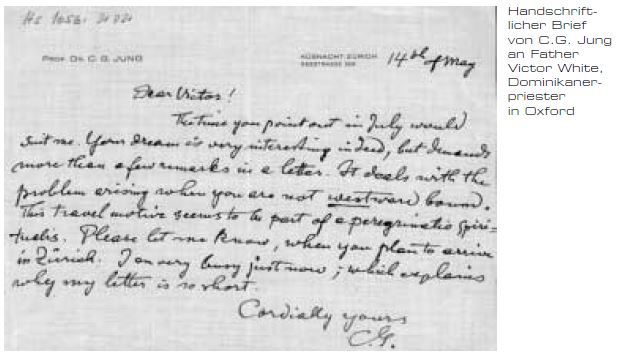 Hs 1056:
PROF. DR. C. G. JUNG
KÜSNACHT ZÜRICH
SEESTRASSE
14th of May
Dear Victor!
The time you point out in July would
suit me. Your dream is very interesting indeed, but demands
more than a few remarks in a letter. It deals with the
problem arising when you are not westward bound.
This travel motive seems to be part of a peregrinatio spiri-
tualis. Please let me know, when you plan to arrive
in Zürich. I am very busy just now; which explains
why my letter is so short.
Cordially yours
C.G.
Handschrift-
licher Brief
von C.G. Jung
an Father
Victor White,
Dominikaner-
priester
in Oxford